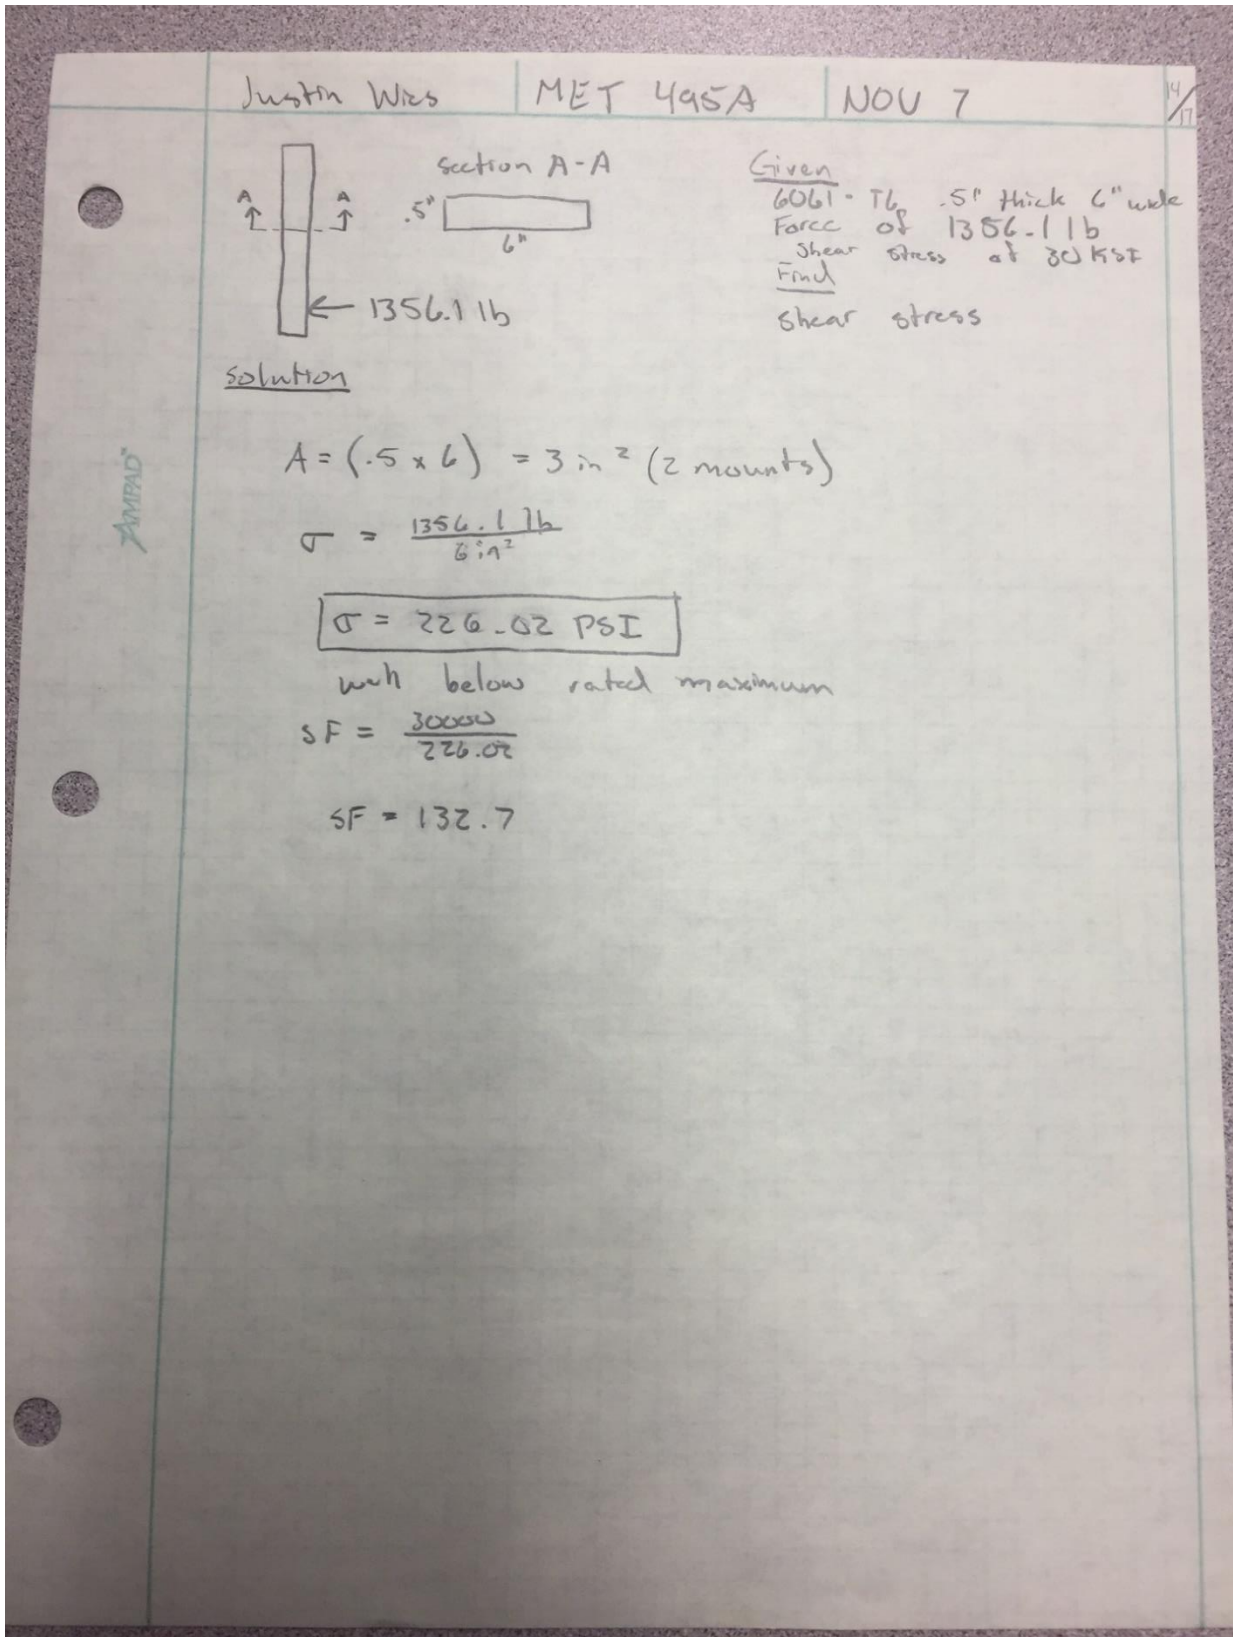 Justin Wies MET 495A NOV 7 14/17
Section A-A
A A
.5"
6"
1356.1 lb
Given
6061-T6 .5" thick 6" wide
Force of 1356.1 lb
Shear stress of 30 KSI
Find
Shear stress
Solution
A = (.5 x 6) = 3 in² (2 mounts)
σ = 1356.1 lb / 6 in²
σ = 226.02 PSI
well below rated maximum
SF = 30000 / 226.02
SF = 132.7
AMPAD™